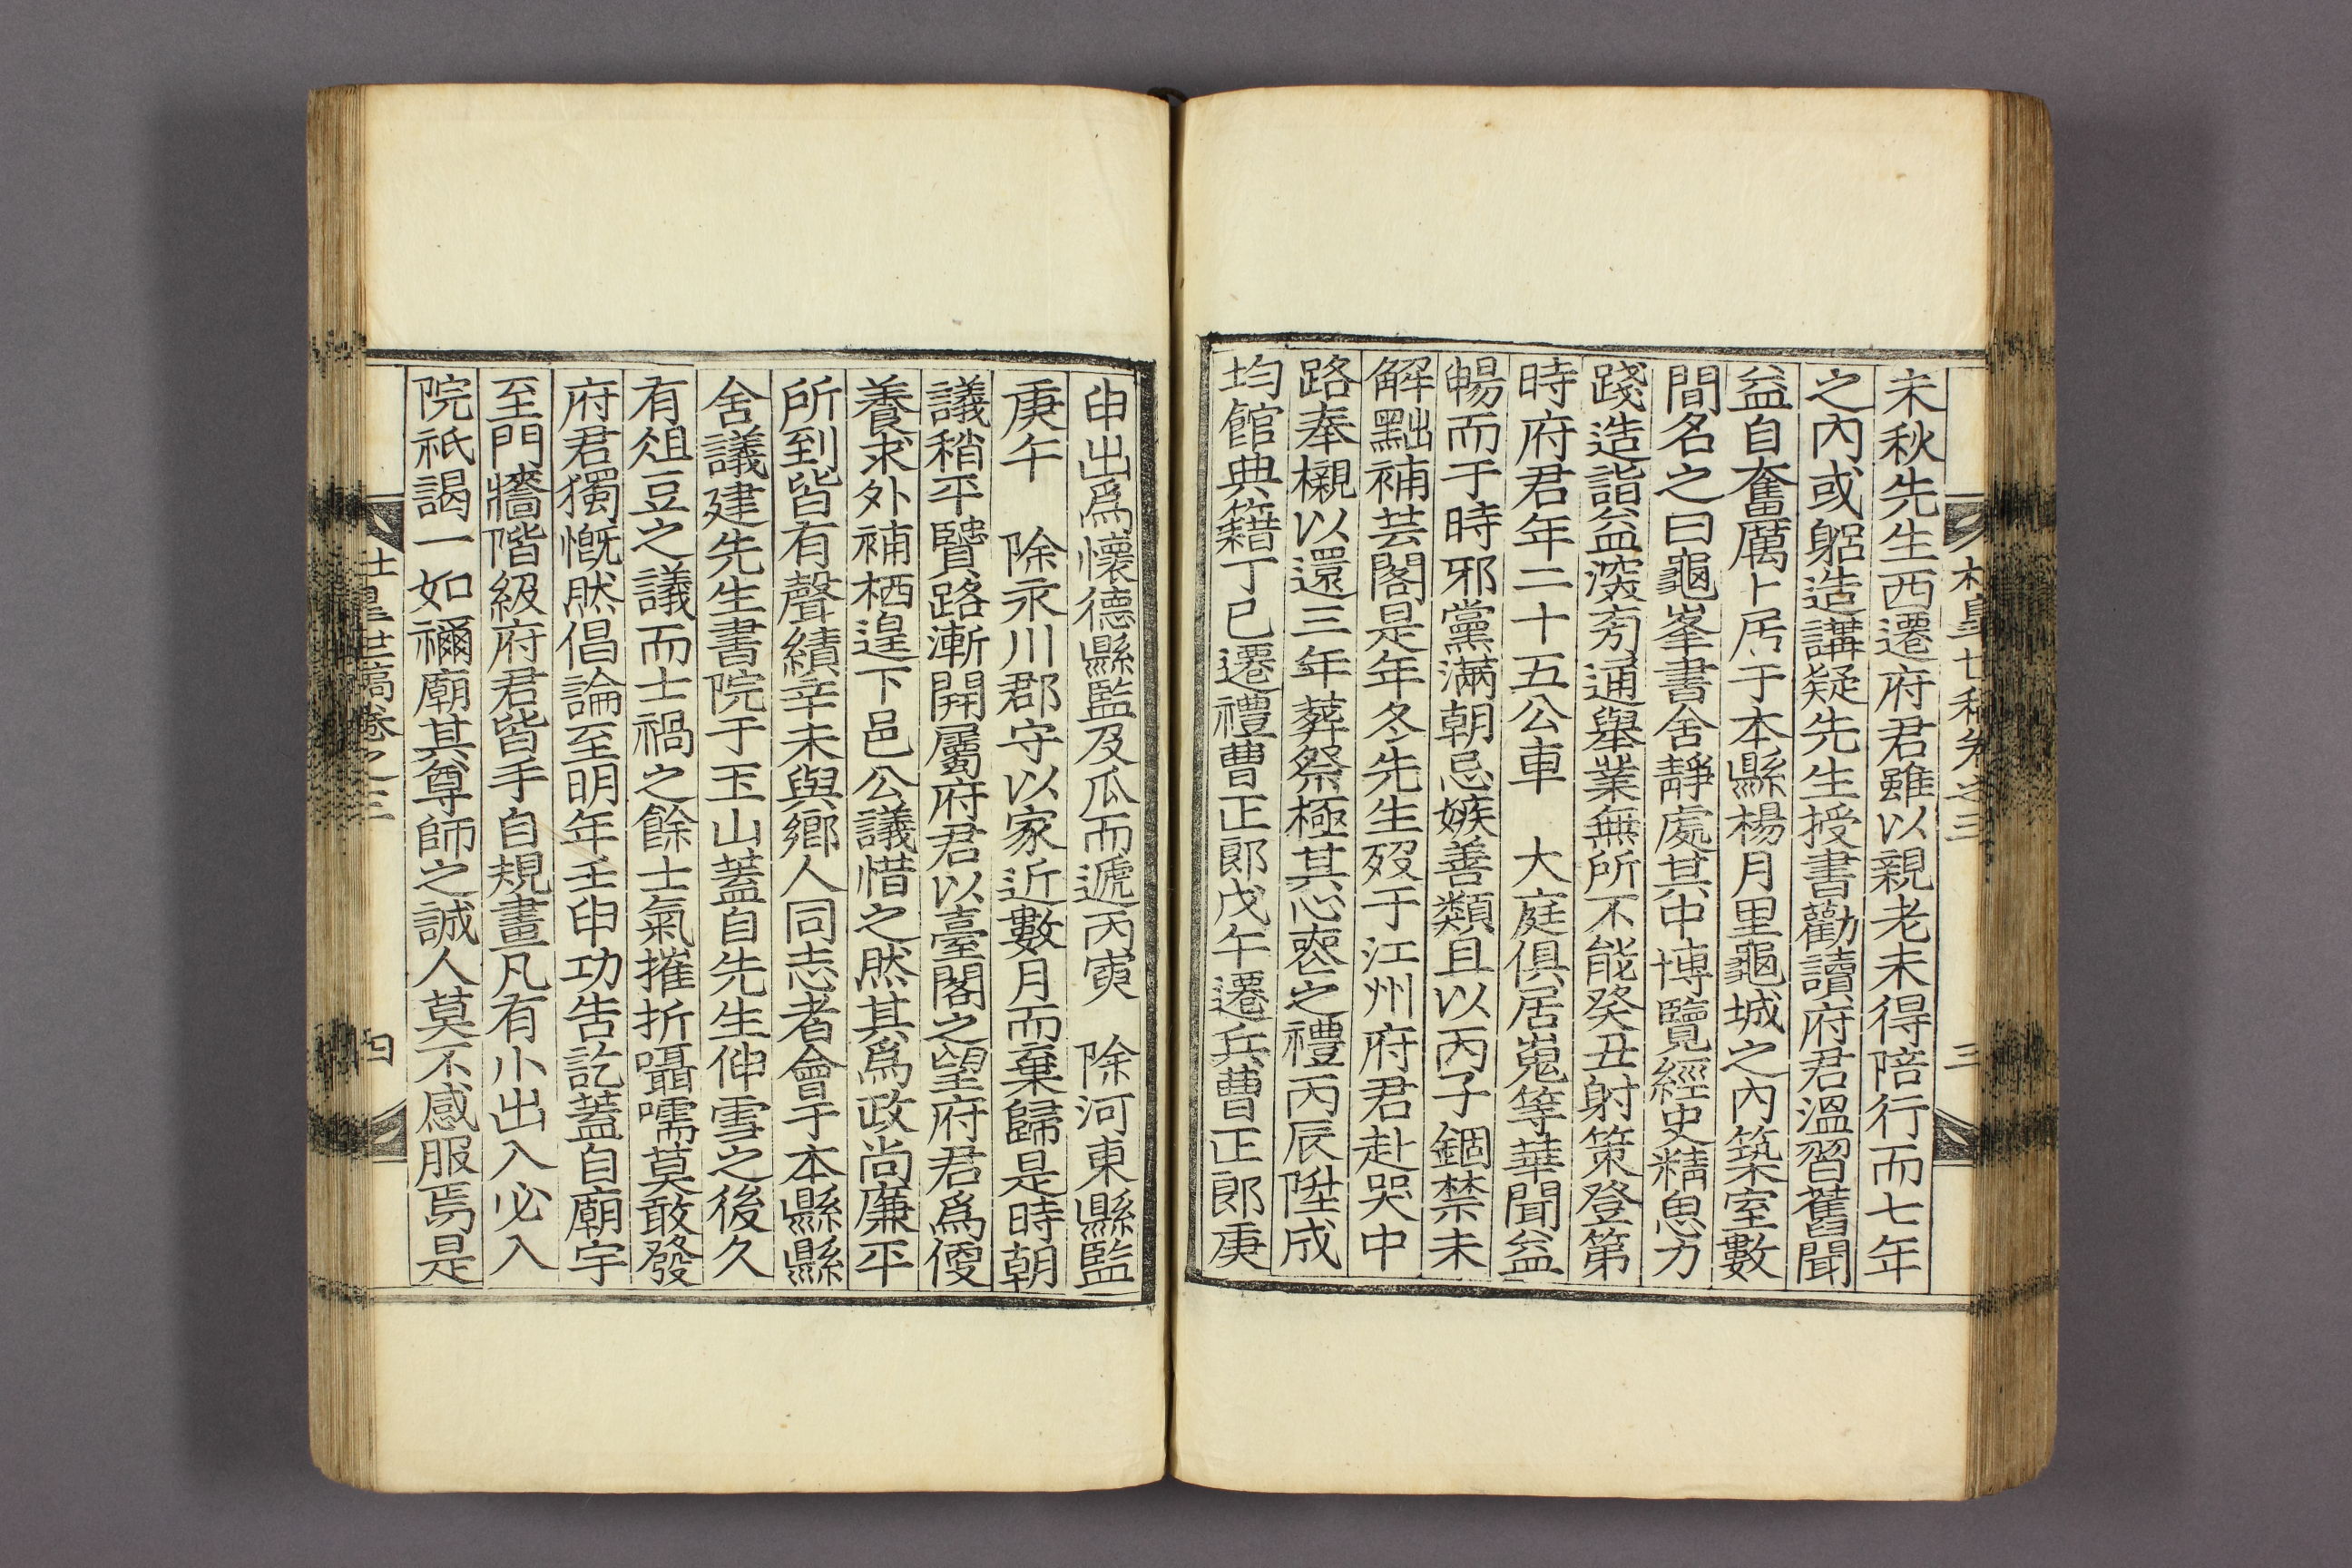 未秋先生西遷府君雖以親老未得陪行而七年
之內或躬造講疑先生授書勸讀府君溫習舊聞
益自奮厲卜居于本縣楊月里龜城之內築室數
間名之曰龜峯書舍靜處其中博覽經史精思力
踐造詣益深旁通舉業無所不能癸丑射策登第
時府君年二十五公車 大庭俱居嵬等華聞益
暢而于時邪黨滿朝忌嫉善類且以丙子錮禁未
解黜補芸閣是年冬先生歿于江州府君赴哭中
路奉櫬以還三年葬祭極其心喪之禮丙辰陞成
均館典籍丁巳遷禮曹正郎戊午遷兵曹正郎庚
三
申出爲懷德縣監及瓜而遞丙寅 除河東縣監
庚午 除永川郡守以家近數月而棄歸是時朝
議稍平賢路漸開屬府君以臺閣之望府君爲便
養求外補栖遑下邑公議惜之然其爲政尙廉平
所到皆有聲績辛未與鄕人同志者會于本縣縣
舍議建先生書院于玉山蓋自先生伸雪之後久
有俎豆之議而士禍之餘士氣摧折囁嚅莫敢發
府君獨慨然倡論至明年壬申功告訖蓋自廟宇
至門牆階級府君皆手自規畫凡有小出入必入
院祇謁一如禰廟其尊師之誠人莫不感服焉是
世稿卷之三